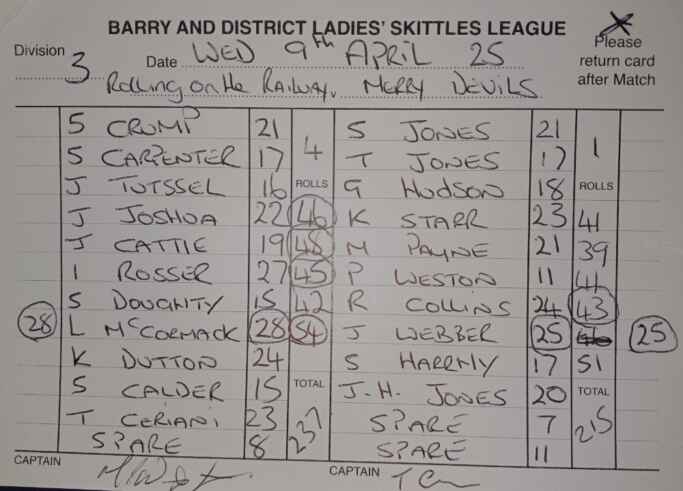 BARRY AND DISTRICT LADIES' SKITTLES LEAGUE
Division 3 Date WED 9th APRIL 25 Please return card after Match
Rolling on the Railway. MERRY DEVILS
S CRUMP 21 4 S JONES 21 1
S CARPENTER 17 T JONES 17
J TUTSSEL 16 ROLLS G HUDSON 18 ROLLS
J JOSHUA 22 46 K STARR 23 41
J CATTIE 19 48 M PAYNE 21 39
I ROSSER 27 45 P WESTON 11 41
S DOUGHTY 15 42 R COLLINS 24 43
28 L McCORMACK 28 54 J WEBBER 25 25
K DUTTON 24 S HARRHY 17 51
S CALDER 15 TOTAL J.H. JONES 20 TOTAL
T CERIANI 23 237 SPARE 7 215
SPARE 8 SPARE 11
CAPTAIN CAPTAIN